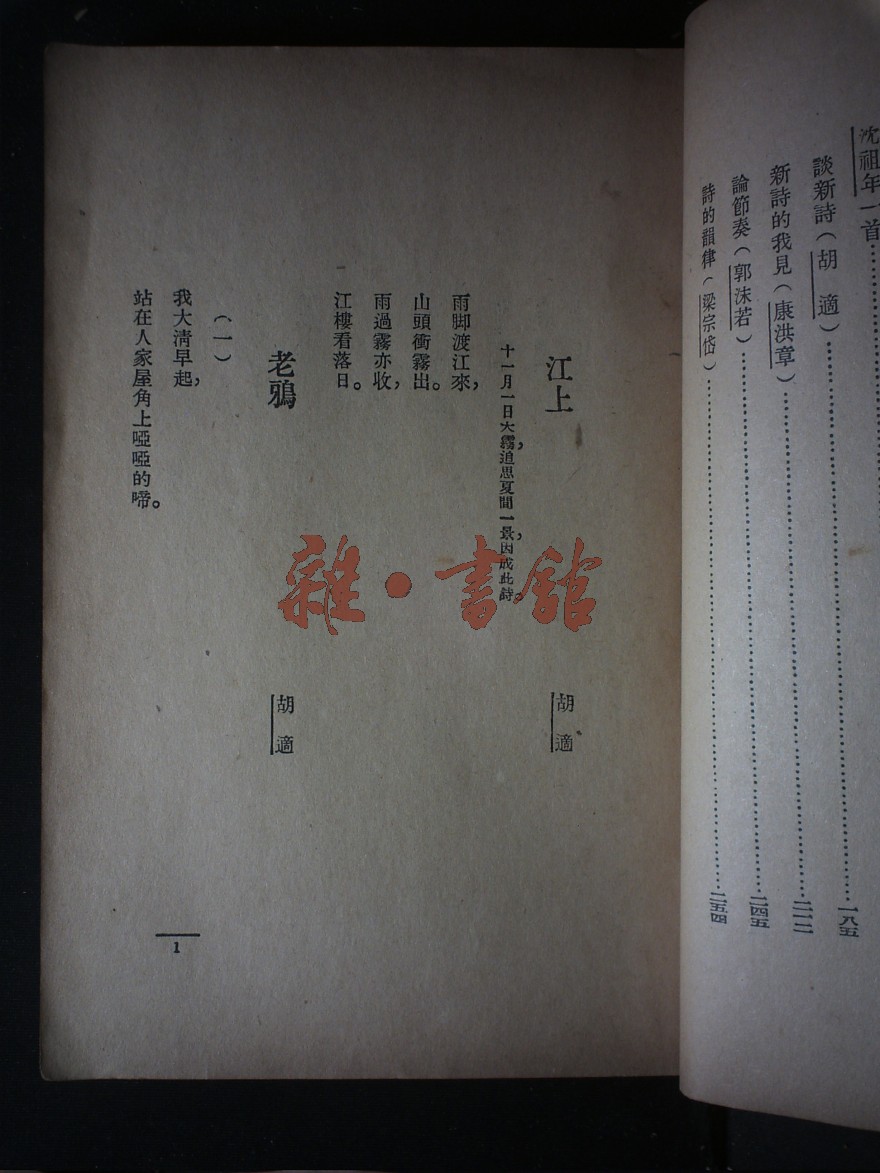 沈祖年一首
談新詩（胡適）一八五
新詩的我見（康洪章）二一二
論節奏（郭沫若）二四五
詩的韻律（梁宗岱）二五四
江上 胡適
十一月一日大霧，追思夏間一景，因成此詩。
雨脚渡江來，
山頭衝霧出。
雨過霧亦收，
江樓看落日。
老鴉 胡適
（一）
我大清早起，
站在人家屋角上啞啞的啼。
1
雜·書館